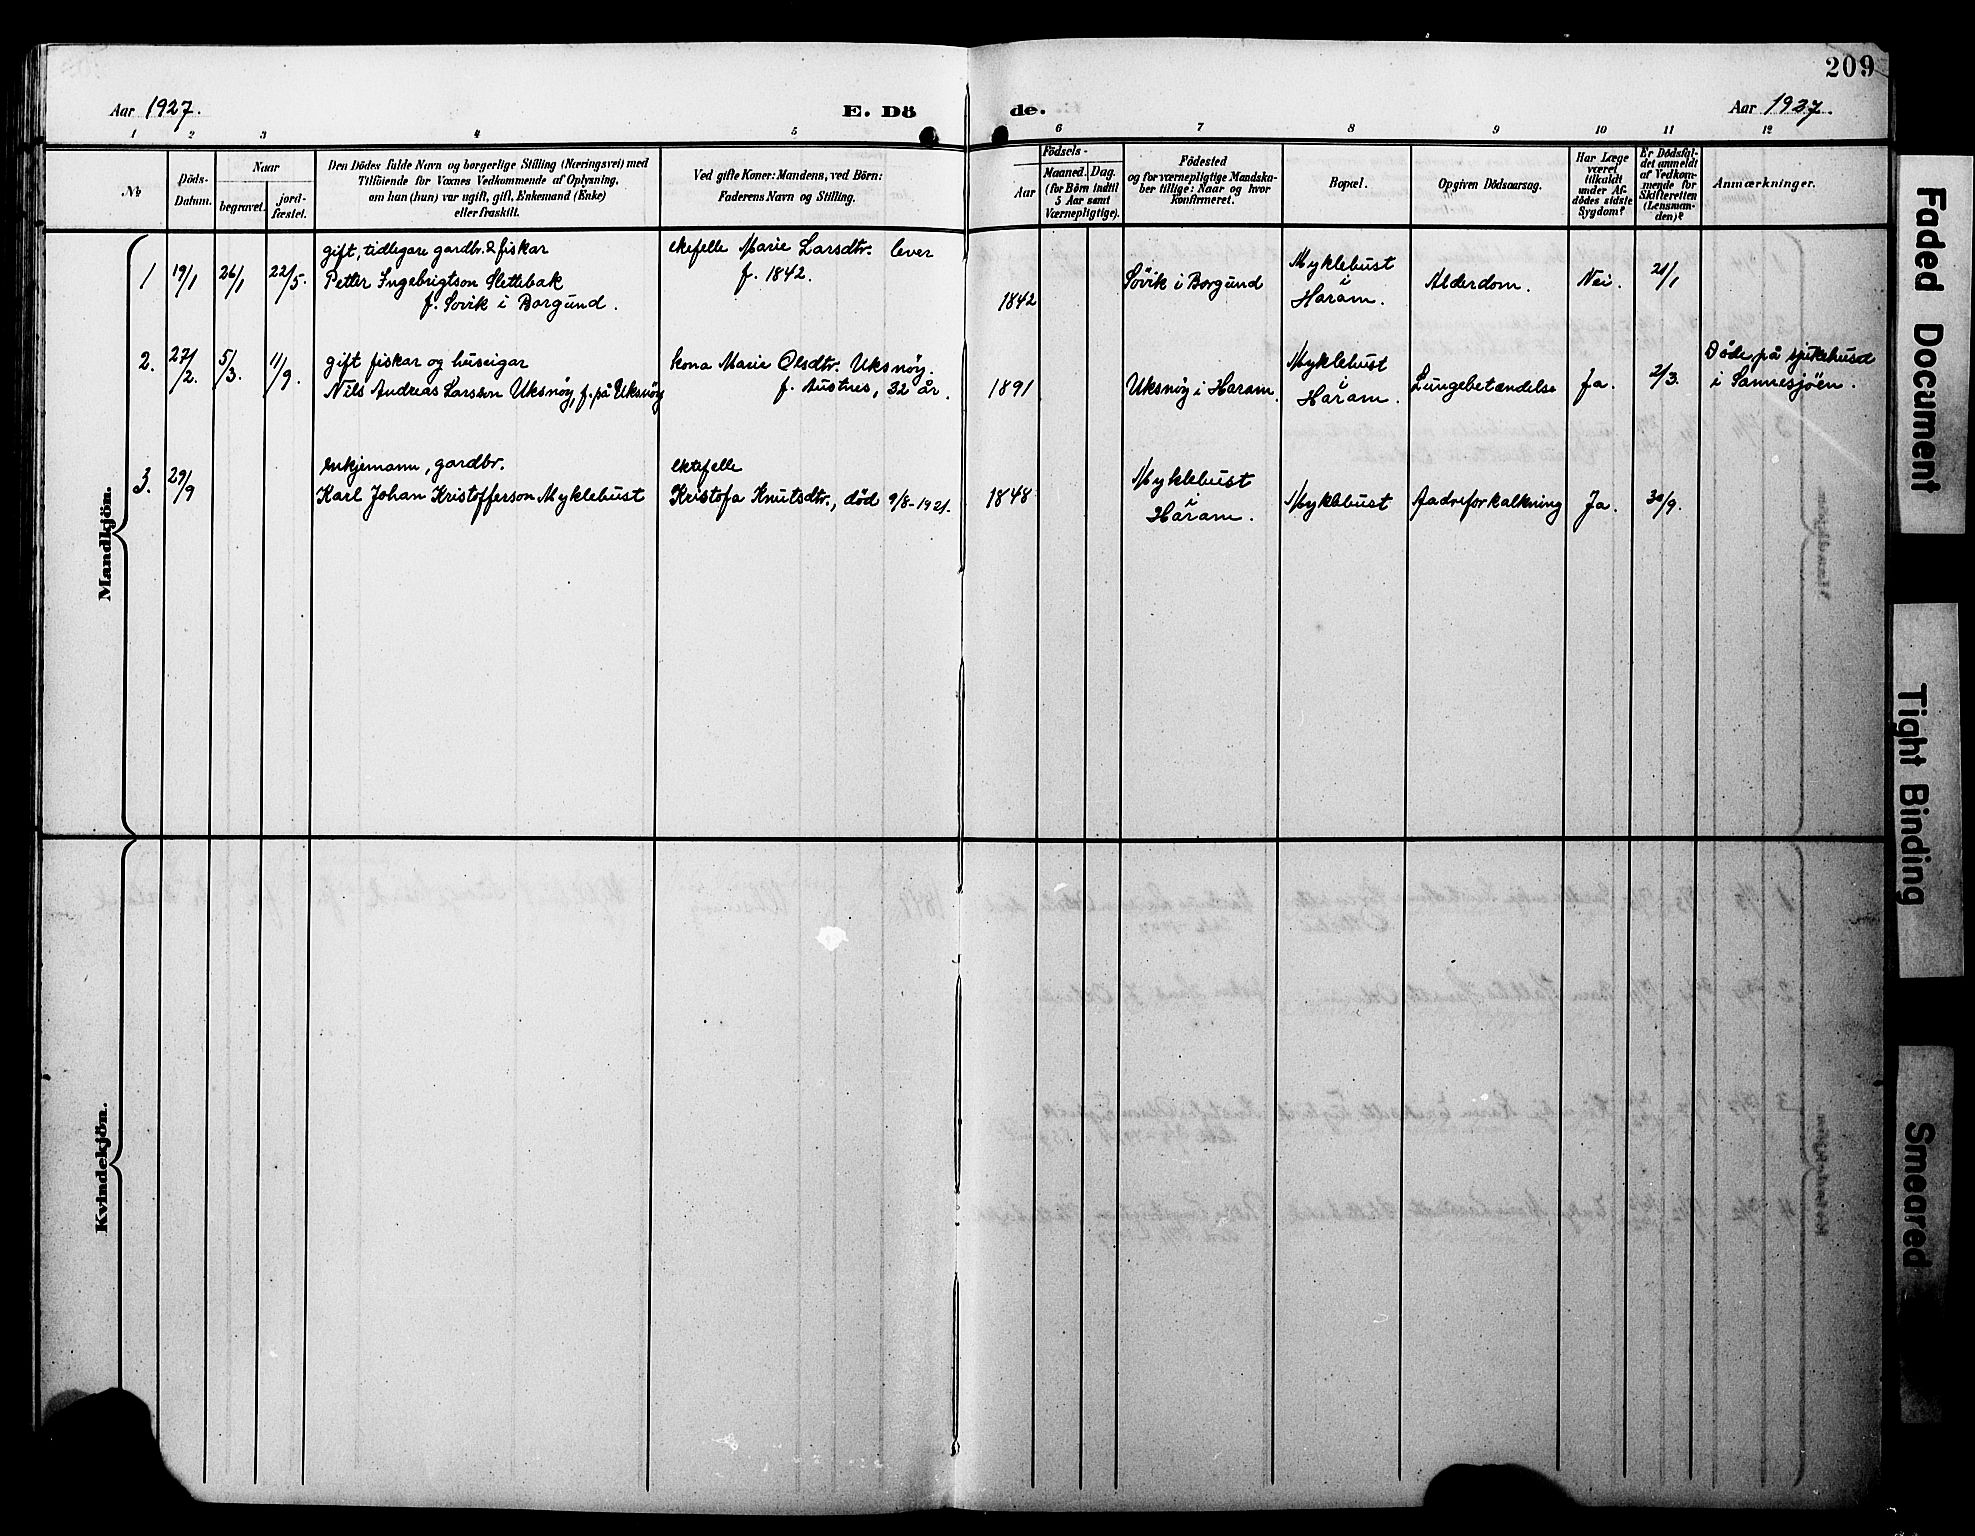 209
Aar 1927.
E. Dö
de.
Aar 1927.
1 2 3 4 5 6 7 8 9 10 11 12
№
Döds-
Datum.
Naar
begravet.
jord-
fæstet.
Den Dödes fulde Navn og borgerlige Stilling (Næringsvei) med
Tilföiende for Voxnes Vedkommende af Oplysning,
om han (hun) var ugift, gift, Enkemand (Enke)
eller fraskilt.
Ved gifte Koner: Mandens, ved Börn:
Faderens Navn og Stilling.
Födsels-
Aar
Maaned. Dag.
(for Börn indtil
5 Aar samt
Værnepligtige).
Födested
og for værnepligtige Mandska-
ber tillige: Naar og hvor
konfirmeret.
Bopæl.
Opgiven Dödsaarsag.
Har Læge
været
tilkaldt
under Af-
dödes sidste
Sygdom?
Er Dödsfal-
det anmeldt
af Vedkom-
mende for
Skifteretten
(Lensman-
den)?
Anmærkninger.
Mandkjön.
1 19/1 26/1 22/5.
gift, tidlegare gardbr. & fiskar
Petter Ingebrigtson Slettebak
f. Sövik i Borgund.
ektefelle Marie Larsdtr. lever
f. 1842.
1842
Sövik i Borgund
Myklebust
i
Haram.
Alderdom.
Nei.
21/1
2. 27/2. 5/3. 11/9.
gift fiskar og huseigar
Nils Andreas Larsson Uksnöy, f. på Uksnöy
kona Marie Olsdtr. Uksnöy.
f. Austnes, 32 år.
1891
Uksnöy i Haram.
Myklebust
i
Haram.
Lungebetændelse
Ja.
2/3.
Döde på sjukehusd
i Sannesjöen.
3. 29/9
enkjemann, gardbr.
Karl Johan Kristofferson Myklebust
ektefelle
Kristofa Knutsdtr., död 9/8-1921.
1848
Myklebust
i
Haram.
Myklebust
Aadreforkalkning
Ja.
30/9.
Kvindekjön.
Faded Document
Tight Binding
Smeared